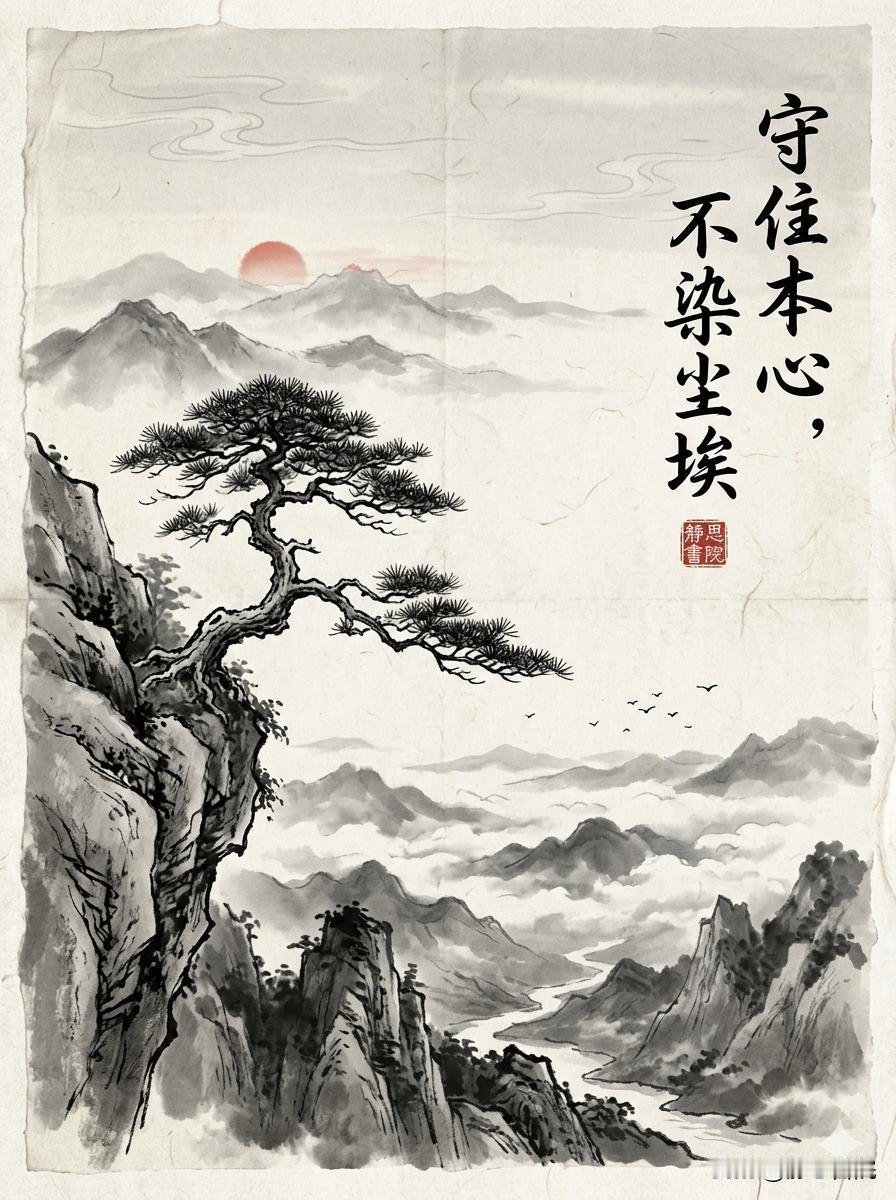 守住本心，
不染尘埃
思院
静書